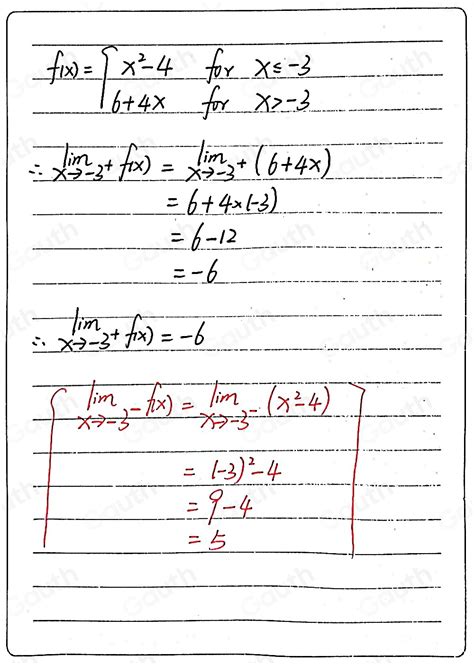 f(x) = { x²-4 for x≤-3
6+4x for x>-3
∴ lim x→-3⁺ f(x) = lim x→-3⁺ (6+4x)
= 6+4×(-3)
= 6-12
= -6
∴ lim x→-3⁺ f(x) = -6
[ lim x→-3⁻ f(x) = lim x→-3⁻ (x²-4) ]
= (-3)²-4
= 9-4
= 5